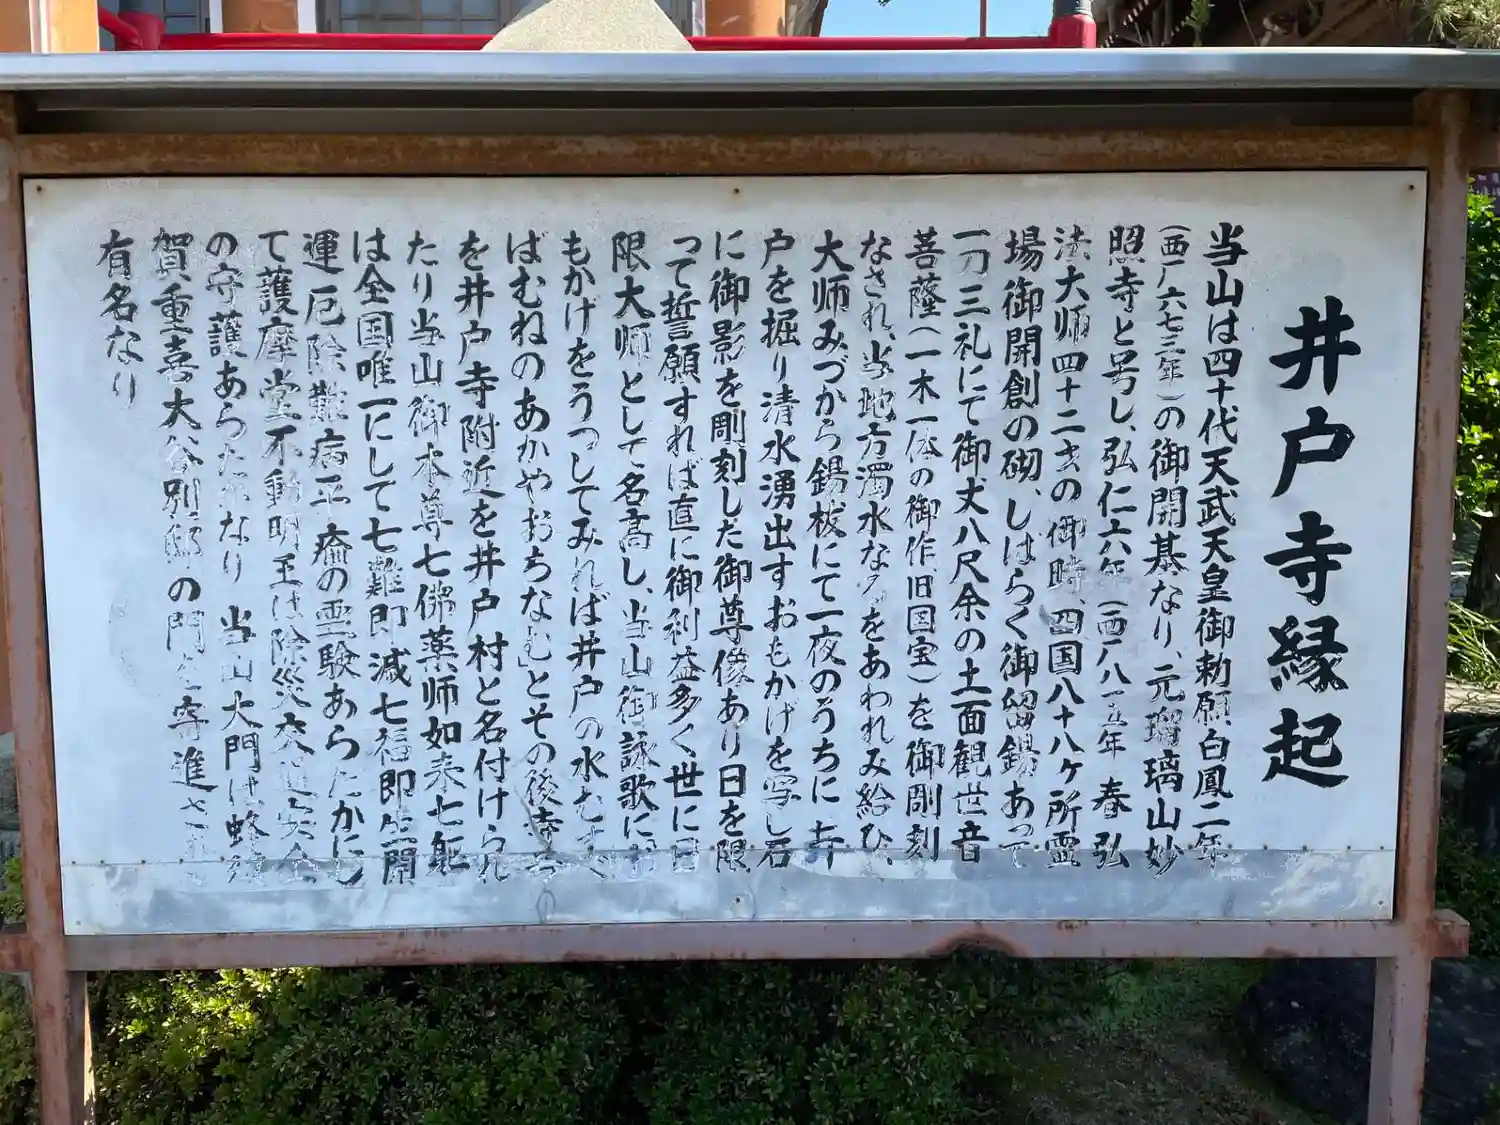 井戸寺縁起
当山は四十代天武天皇御勅願白鳳二年
(西厂六七三年)の御開基なり、元瑠璃山妙
照寺と号し、弘仁六年(西厂八一五年 春 弘
法大师四十二才の御時、四国八十八ヶ所霊
場御開創の砌、しばらく御留錫あって
一刀三礼にて御丈八尺余の土面観世音
菩薩(一木一体の御作旧国宝)を御剛刻
なされ、当地方濁水なるをあわれみ給ひ、
大师みづから錫杖にて一夜のうちに寺
戸を掘り清水湧出すおもかげを写し石
に御影を剛刻した御尊像あり日を限
って誓願すれば直に御利益多く、世に日
限大师として名高し、当山御詠歌に
もかげをうつしてみれば井戸の水むす
ばむねのあかやおちなむ」とその後寺
を井戸寺附近を井戸村と名付けられ
たり当山御本尊七佛薬师如来七躯
は全国唯一にして七難即滅七福即生開
運厄除難病平癒の霊験あらたかにし
て護摩堂不動明王は除災交通安全
の守護あらたかなり 当山大門は蜂須
賀重喜大谷別邸の門を寄進され
有名なり